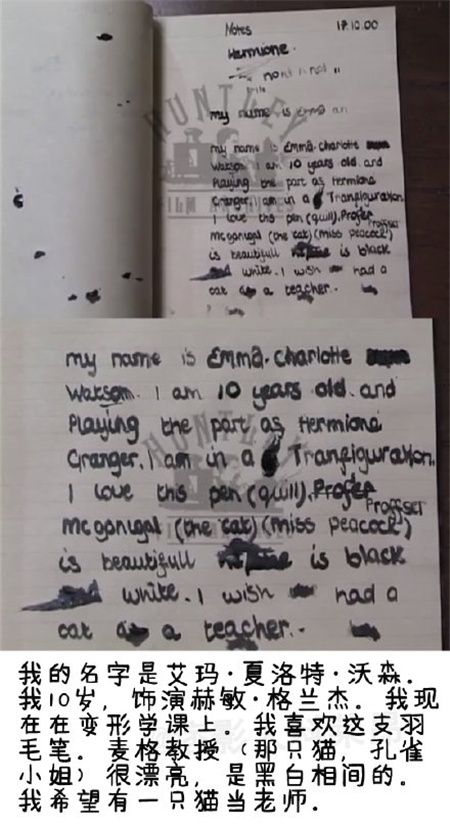 Notes
17.10.00
Hermione.
my name is Emma an
my name is Emma. Charlotte
Watson I am 10 years old. and
Playing the part as Hermione
Granger. I am in a Tranfiguration.
I love this pen (quill). Profer Proffser
Mcgonigal (the cat) (miss peacock)
is beautifull is black
white. I wish had a
cat as a teacher.
HUNTLEY
FILM ARCHIVES
my name is Emma. Charlotte
Watson. I am 10 years old. and
Playing the part as Hermione
Granger. I am in a Tranfiguration.
I love this pen (quill). Profer Proffser
Mcgonigal (the cat) (miss peacock)
is beautifull is black
white. I wish had a
cat as a teacher.
HUNTLEY
FILM ARCHIVES
我的名字是艾玛·夏洛特·沃森.
我10岁, 饰演赫敏·格兰杰. 我现
在在变形学课上. 我喜欢这支羽
毛笔. 麦格教授 (那只猫, 孔雀
小姐) 很漂亮, 是黑白相间的.
我希望有一只猫当老师.